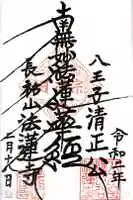 八王子清正公
令和二年
南無妙法蓮華経
長祐山法蓮寺
二月十六日